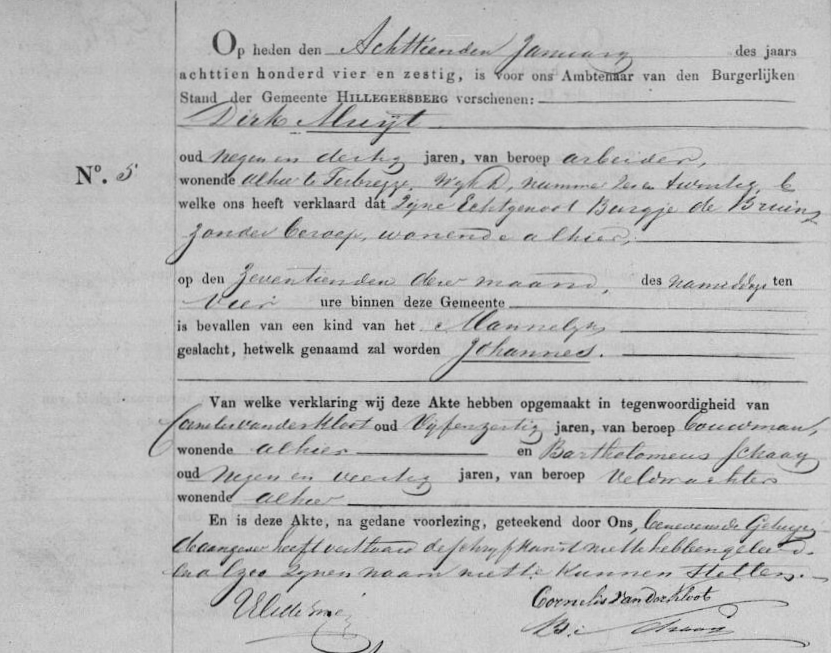 Op heden den Achttienden January des jaars
achttien honderd vier en zestig, is voor ons Ambtenaar van den Burgerlijken
Stand der Gemeente HILLEGERSBERG verschenen:
Dirk Muijt
oud negen en dertig jaren, van beroep arbeider,
No. 5
wonende alhier te Terbregge, Wyk D, nummer en twintig, C
welke ons heeft verklaard dat zyne Echtgenoot Burgje de Bruin
zonder beroep, wonende alhier,
op den zeventienden dezer maand, des namiddags ten
Vier ure binnen deze Gemeente
is bevallen van een kind van het Mannelyk
geslacht, hetwelk genaamd zal worden Johannes.
Van welke verklaring wij deze Akte hebben opgemaakt in tegenwoordigheid van
Cornelis van der Kloot oud Vyf en zestig jaren, van beroep bouwman,
wonende alhier en Bartholomeus Schaay
oud negen en veertig jaren, van beroep Veldwachter
wonende alhier
En is deze Akte, na gedane voorlezing, geteekend door Ons, benevens de Getuigen
de aangever heeft verklaard de schryfkunst niet te hebben geleerd
en alzoo zynen naam niet te kunnen stellen.
Cornelis van der Kloot
B: Schaay